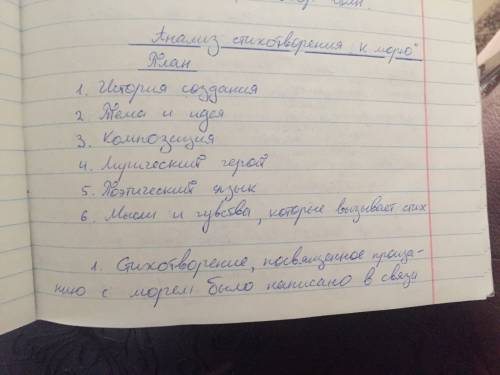 Анализ стихотворения „К морю"
План
1. История создания
2. Тема и идея
3. Композиция
4. Лирический герой
5. Поэтический язык
6. Мысли и чувства, которые вызывает стих
1. Стихотворение, посвященное проща-
нию с морем было написано в связи